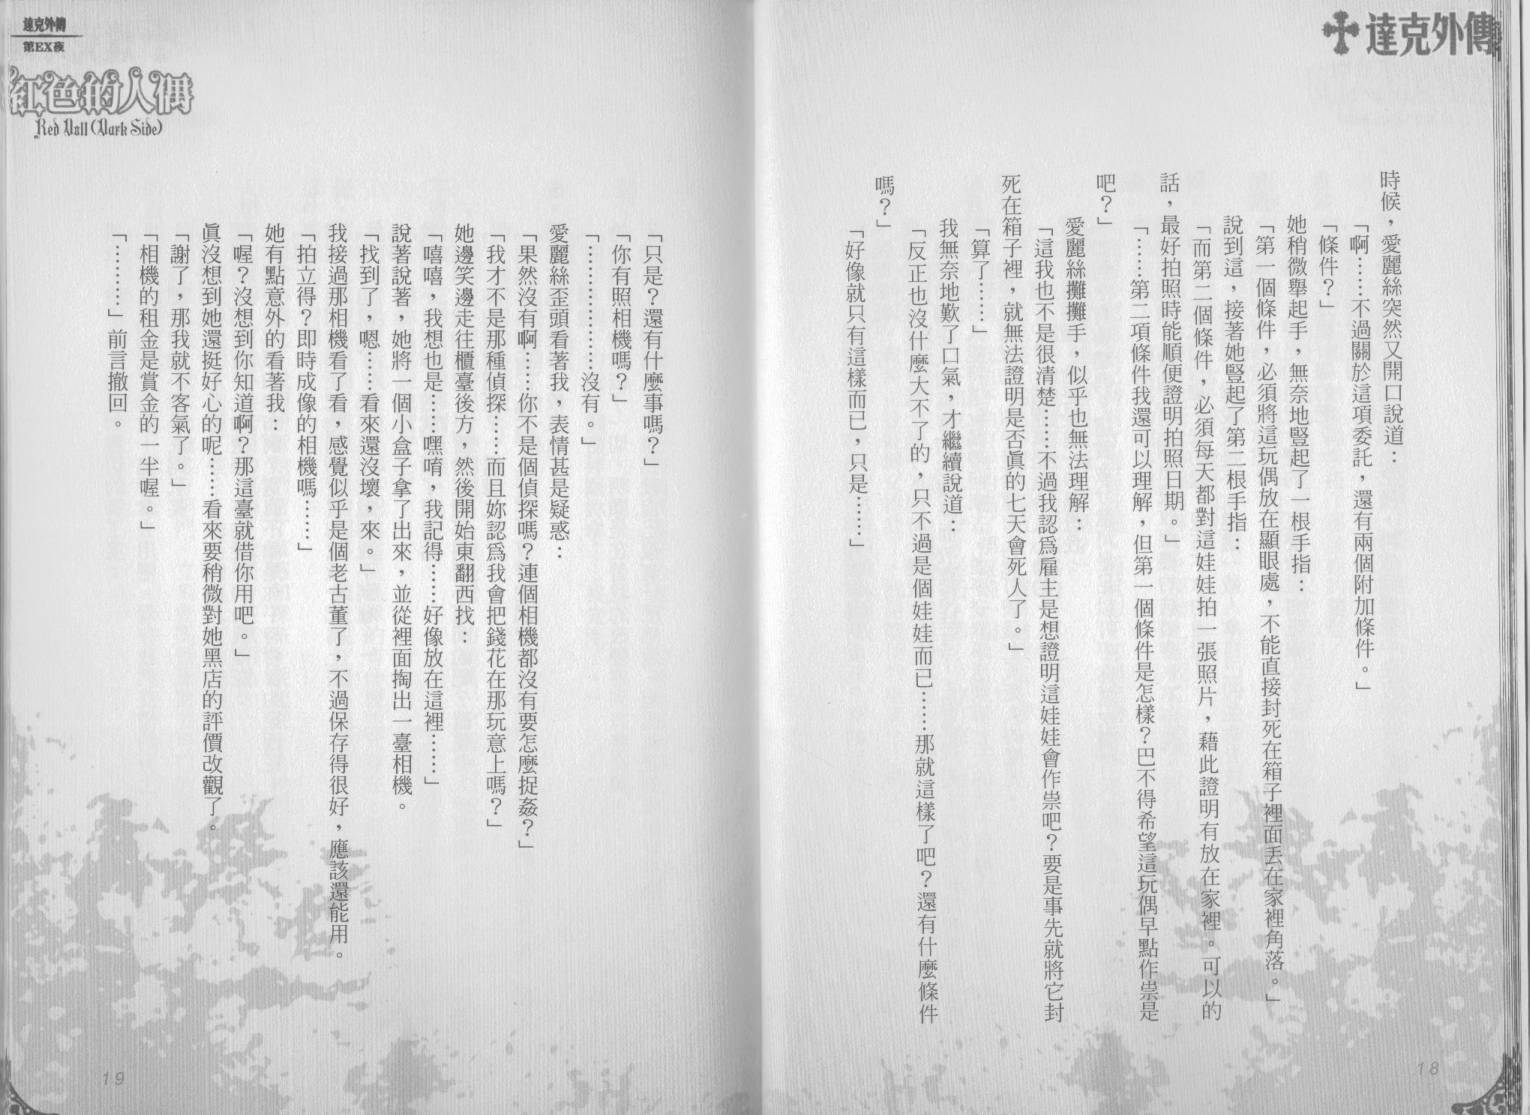 達克外傳
時候，愛麗絲突然又開口說道：
「啊……不過關於這項委託，還有兩個附加條件。」
「條件？」
她稍微舉起手，無奈地豎起了一根手指：
「第一個條件，必須將這玩偶放在顯眼處，不能直接封死在箱子裡面丟在家裡角落。」
說到這，接著她豎起了第二根手指：
「而第二個條件，必須每天都對這娃娃拍一張照片，藉此證明有放在家裡。可以的
話，最好拍照時能順便證明拍照日期。」
「……第二項條件我還可以理解，但第一個條件是怎樣？巴不得希望這玩偶早點作祟是
吧？」
愛麗絲攤攤手，似乎也無法理解：
「這我也不是很清楚……不過我認為雇主是想證明這娃娃會作祟吧？要是事先就將它封
死在箱子裡，就無法證明是否真的七天會死人了。」
「算了……」
我無奈地歎了口氣，才繼續說道：
「反正也沒什麼大不了的，只不過是個娃娃而已……那就這樣了吧？還有什麼條件
嗎？」
「好像就只有這樣而已，只是……」
18
達克外傳
第EX夜
紅色的人偶
Red Doll (Dark Side)
「只是？還有什麼事嗎？」
「你有照相機嗎？」
「………………沒有。」
愛麗絲歪頭看著我，表情甚是疑惑：
「果然沒有啊……你不是個偵探嗎？連個相機都沒有要怎麼捉姦？」
「我才不是那種偵探……而且妳認為我會把錢花在那玩意上嗎？」
她邊笑邊走往櫃臺後方，然後開始東翻西找：
「嘻嘻，我想也是……嘿唷，我記得……好像放在這裡……」
說著說著，她將一個小盒子拿了出來，並從裡面掏出一臺相機。
「找到了，嗯……看來還沒壞，來。」
我接過那相機看了看，感覺似乎是個老古董了，不過保存得很好，應該還能用。
「拍立得？即時成像的相機嗎……」
她有點意外的看著我：
「喔？沒想到你知道啊？那這臺就借你用吧。」
真沒想到她還挺好心的呢……看來要稍微對她黑店的評價改觀了。
「謝了，那我就不客氣了。」
「相機的租金是賞金的一半喔。」
「………」前言撤回。
19